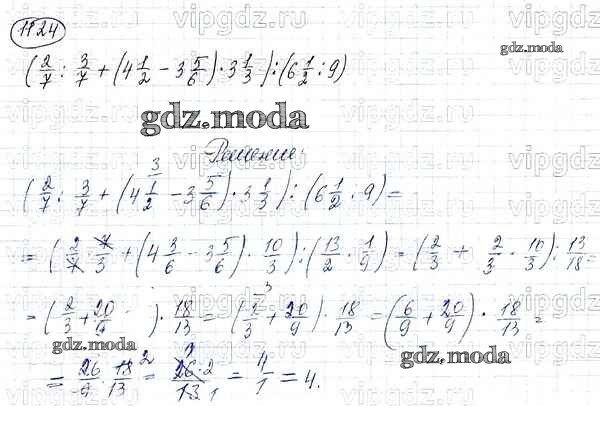 1124
(2/7 : 3/7 + (4 1/2 - 3 5/6) · 3 1/3) : (6 1/2 : 9)
gdz.moda
gdz.moda
Решение:
(2/7 : 3/7 + (4 1/2 - 3 5/6) · 3 1/3) : (6 1/2 : 9) =
= (2/7 · 7/3 + (4 3/6 - 3 5/6) · 10/3) : (13/2 · 1/9) = (2/3 + 2/3 · 10/3) : 13/18 =
= (2/3 + 20/9) · 18/13 = (2/3 + 20/9) · 18/13 = (6/9 + 20/9) · 18/13 =
gdz.moda
gdz.moda
= 26/9 · 18/13 = 26·2/13 = 4/1 = 4.
vipgdz.com